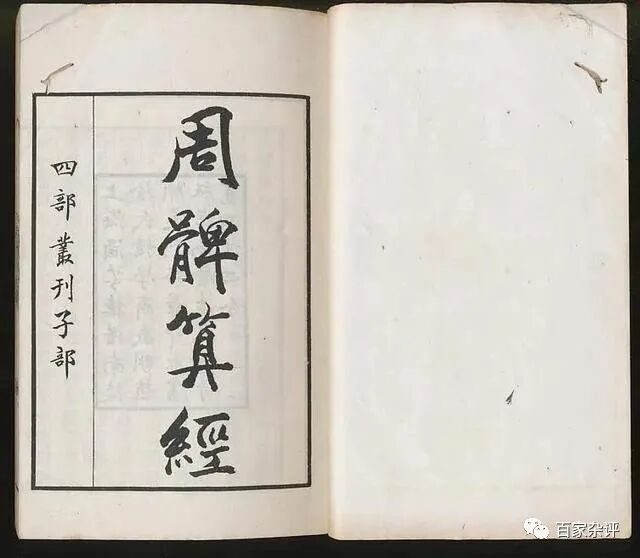 周髀算經
四部叢刊子部
百家杂评